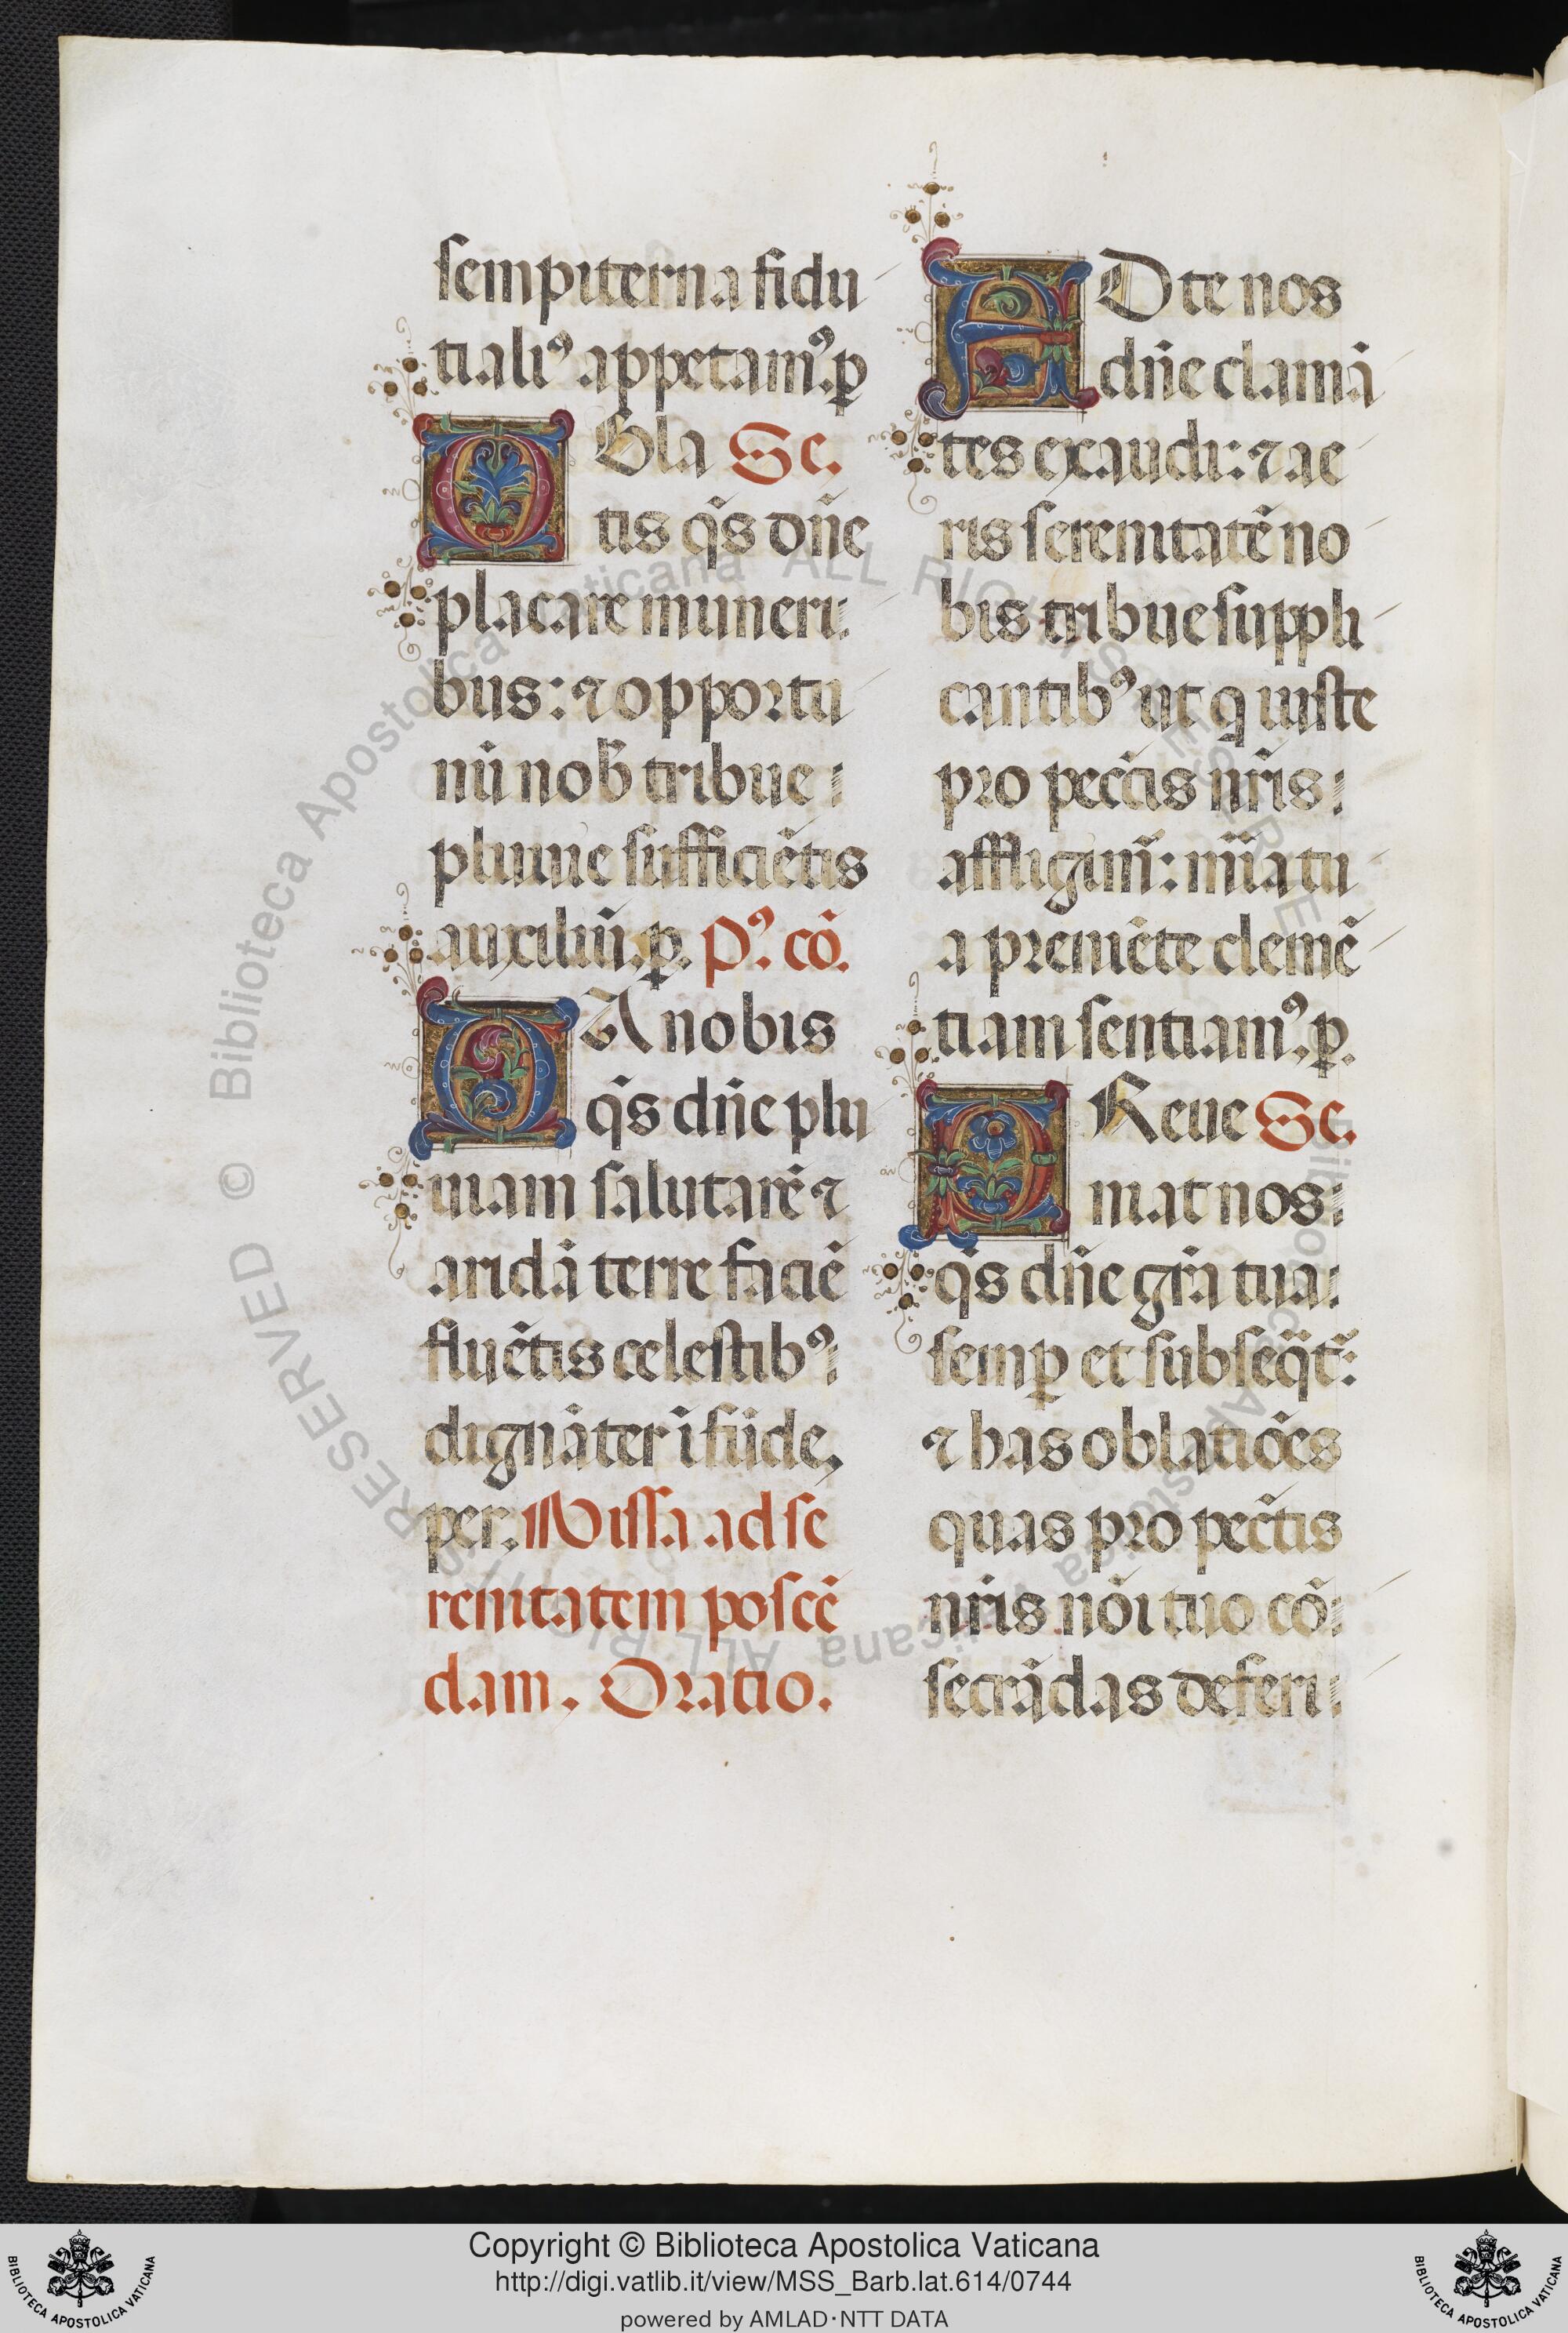 sempiterna fidu
tiali⁹ appetam⁹. ꝑ
OBla Sc.
tis q̃s dñe
placare muneri
bus: ⁊ opportu
nũ nob̃ tribue
pluuie sufficiẽtis
auxiliũ. ꝑ. P⁹. cõ.
DA nobis
q̃s dñe plu
uiam salutarẽ ⁊
aridã terre faciẽ
fluẽtis celestib⁹
dignãter ĩfũde.
per. Missa ad se
renitatem poscẽ
dam. Oratio.
AD te nos
dñe clamã
tes exaudi: ⁊ ae
ris serenitatẽ no
bis tribue suppli
cantib⁹ ut q iuste
pro pecc̃tis nr̃is
affligim̃: mĩa tu
a preuiẽte clemẽ
tiam sentiam⁹. ꝑ.
PReue Sc.
niat nos
q̃s dñe gr̃a tua
semꝑ et subseq̃t̃:
⁊ has oblatiões
quas pro pec̃tis
nr̃is nõi tuo cõ
secrãdas deferi
Copyright © Biblioteca Apostolica Vaticana
http://digi.vatlib.it/view/MSS_Barb.lat.614/0744
powered by AMLAD·NTT DATA
BIBLIOTECA APOSTOLICA VATICANA
BIBLIOTECA APOSTOLICA VATICANA